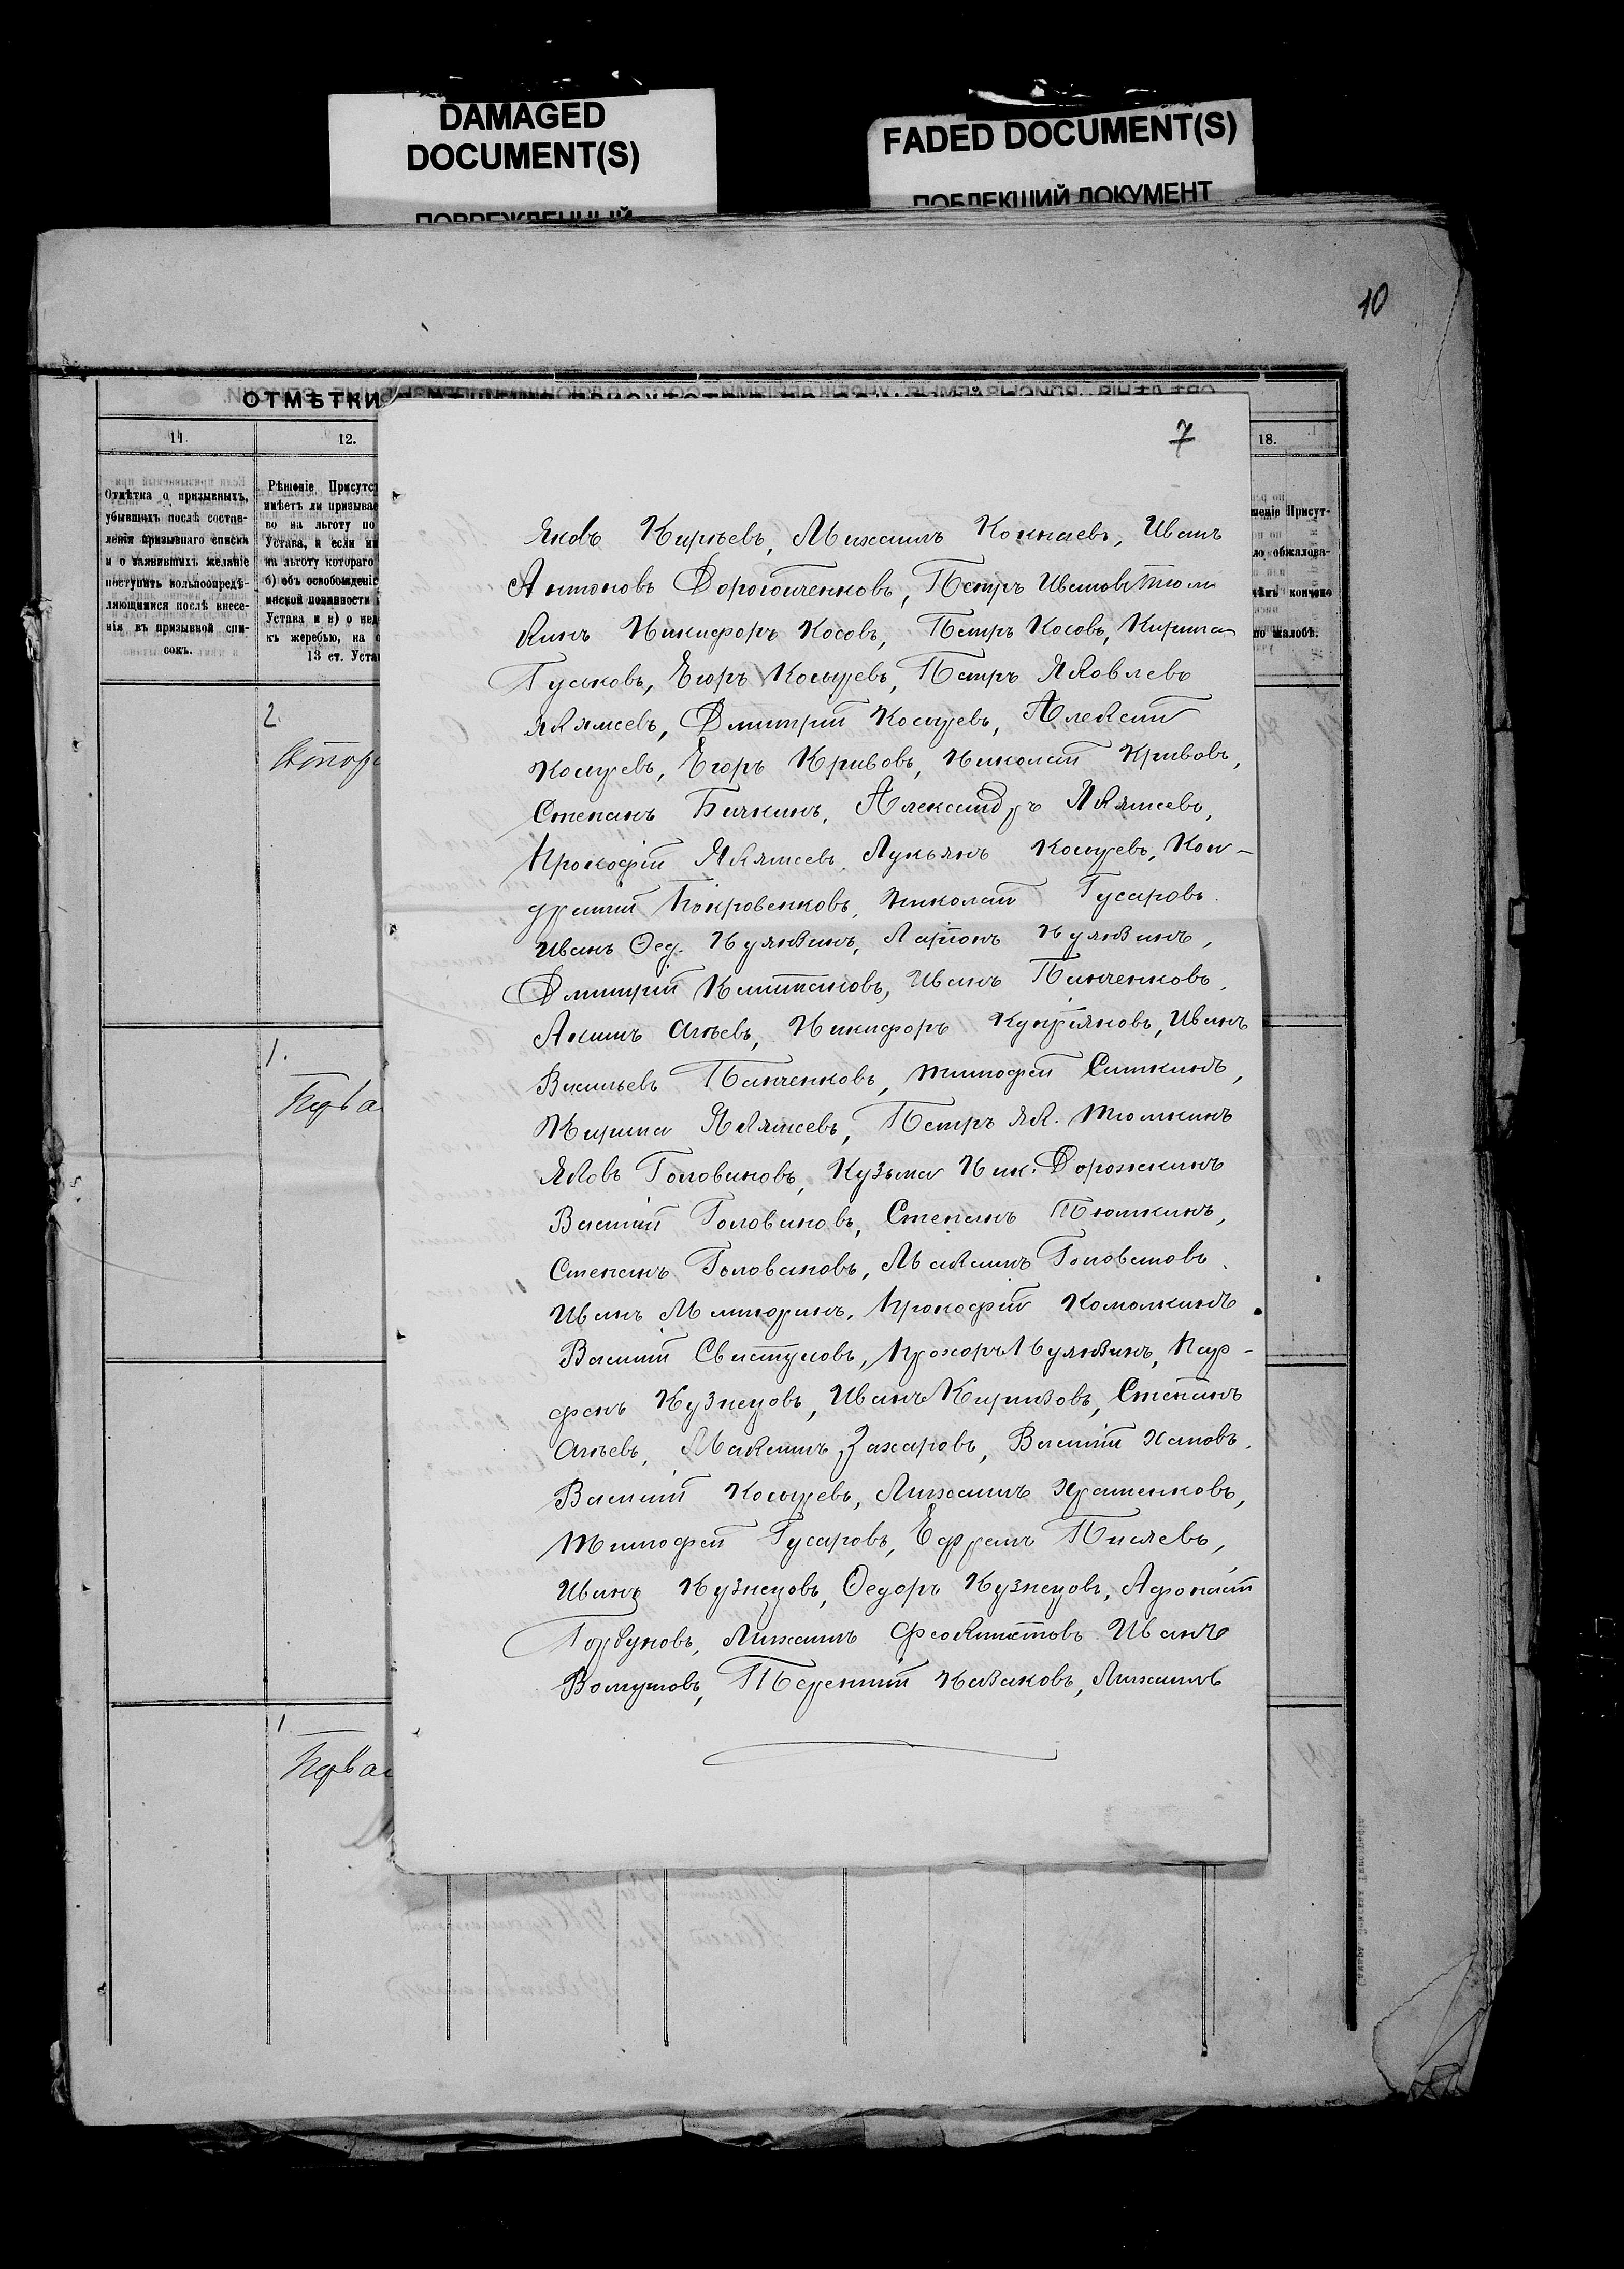 DAMAGED
DOCUMENT(S)
ПОВРЕЖДЕННЫЙ
FADED DOCUMENT(S)
ПОБЛЕКШИЙ ДОКУМЕНТ
10
ОТМѢТКИ
11.
12.
18.
Отмѣтка о призывныхъ,
убывшихъ послѣ состав-
ленія призывнаго списка
и о заявившихъ желаніе
поступить вольноопредѣ-
ляющимися послѣ внесе-
нія въ призывной спи-
сокъ.
Рѣшеніе Присутс
имѣетъ ли призывае
во на льготу по
Устава, и если им
на льготу котораго
б) объ освобожденіе
инской повинности
Устава и в) о нед
къ жеребью, на
13 ст. Уста
шеніе Присут-
ло обжалова-
чѣмъ кончено
по жалобѣ.
2.
1.
Перва
1
Перва
7
Яковъ Киреевъ, Михаилъ Кокнаевъ, Иванъ
Антоновъ Дороговченковъ, Петръ Ивановъ Тюм
кинъ Никифоръ Косовъ, Петръ Косовъ, Кирила
Гуськовъ, Егоръ Косыревъ, Петръ Яковлевъ
Якямсевъ, Дмитрій Косыревъ, Алексѣй
Косыревъ, Егоръ Кривовъ, Николай Кривовъ,
Степанъ Бичкинъ, Александръ Якямсевъ,
Прокофій Якямсевъ, Лукьянъ Косыревъ, Кон-
дратій Покровенковъ, Николай Гусаровъ.
Иванъ Ѳед. Кулявинъ, Ларіонъ Кулявинъ,
Дмитрій Каштановъ, Иванъ Панченковъ,
Акимъ Агеевъ, Никифоръ Купріяновъ, Иванъ
Васильевъ Панченковъ, Тимофей Ситкинъ,
Кирила Якямсевъ, Петръ Як. Тюмкинъ
Яковъ Головановъ, Кузьма Ник. Дорожкинъ
Василій Головановъ, Степанъ Тюмкинъ,
Степанъ Головановъ, Максимъ Головановъ.
Иванъ Милюринъ, Прокофій Комолкинъ
Василій Свистуновъ, Прохоръ Кулявинъ, Пар-
фенъ Кузнецовъ, Иванъ Киризовъ, Степанъ
Агеевъ, Максимъ Захаровъ, Василій Хановъ.
Василій Косыревъ, Михаилъ Храменковъ,
Тимофей Гусаровъ, Ефремъ Писяевъ,
Иванъ Кузнецовъ, Ѳедоръ Кузнецовъ, Афонасій
Горбуновъ, Михаилъ Феоктистовъ Иванъ
Терентій Казаковъ, Михаилъ